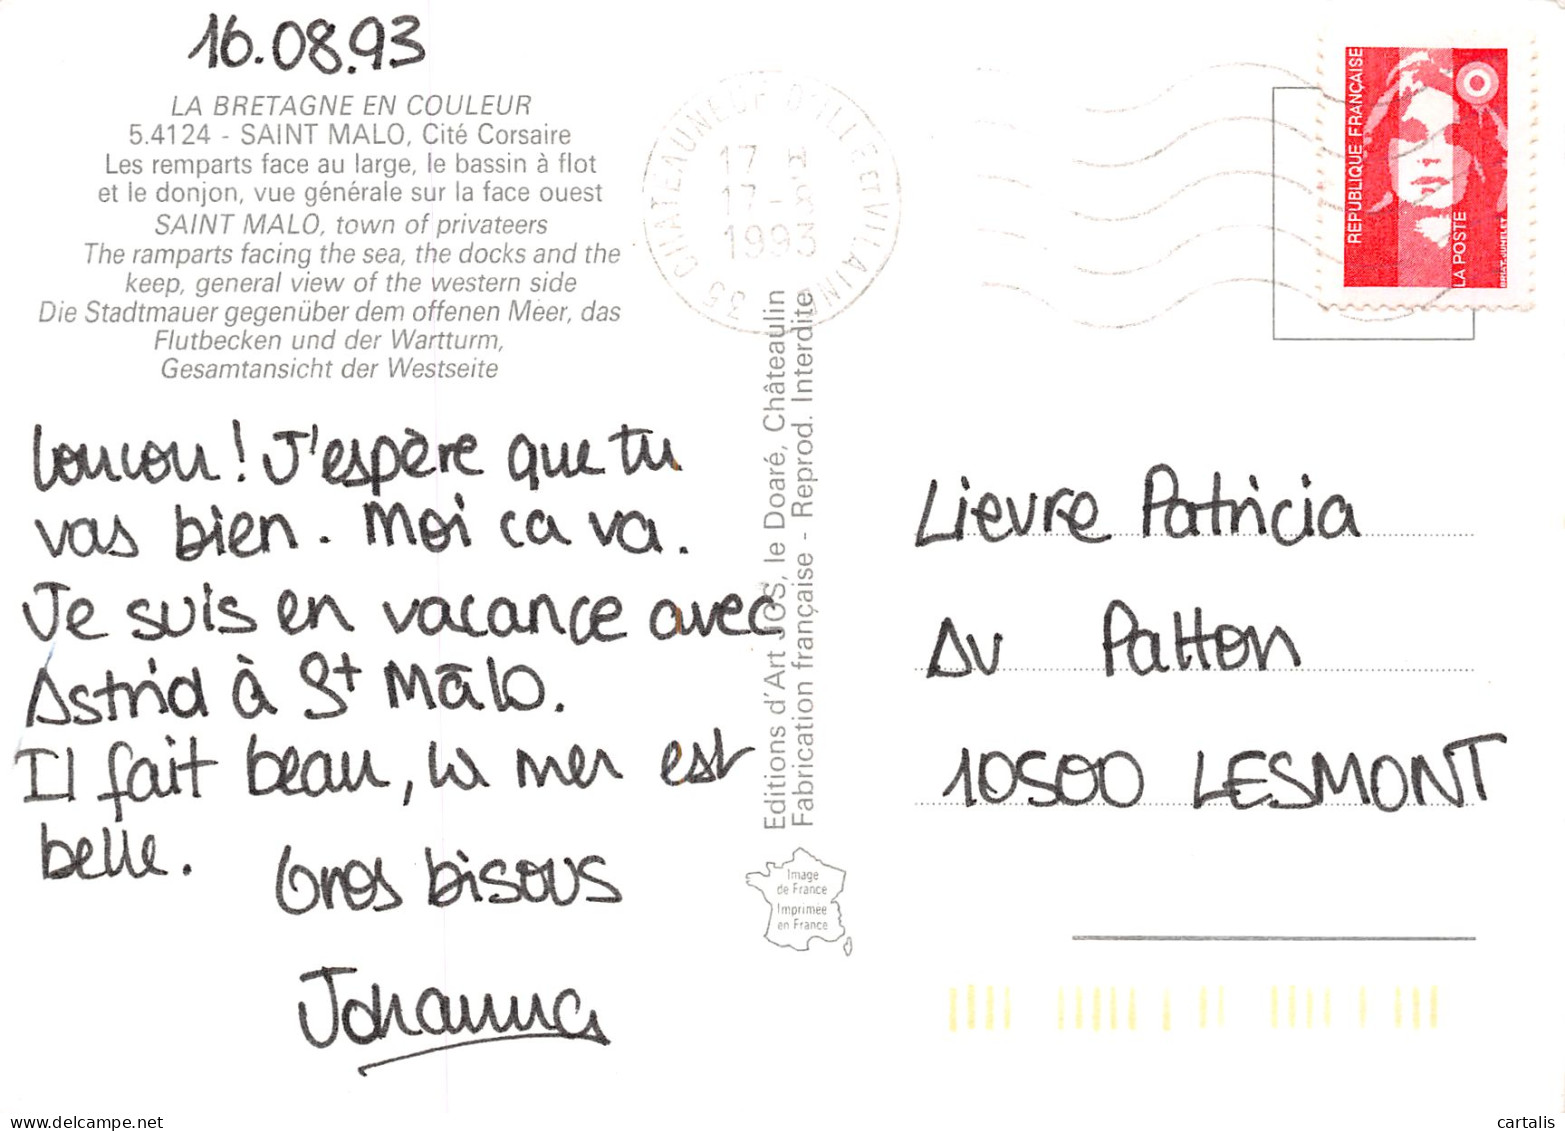 16.08.93
LA BRETAGNE EN COULEUR
5.4124 - SAINT MALO, Cité Corsaire
Les remparts face au large, le bassin à flot
et le donjon, vue générale sur la face ouest
SAINT MALO, town of privateers
The ramparts facing the sea, the docks and the
keep, general view of the western side
Die Stadtmauer gegenüber dem offenen Meer, das
Flutbecken und der Wartturm,
Gesamtansicht der Westseite
Coucou ! J'espère que tu
vas bien. Moi ca va.
Je suis en vacance avec
Astrid à St Mālo.
Il fait beau, la mer est
belle.
Gros bisous
Johanna
35 CHATEAUNEUF D'ILLE ET VILAINE
17 H
17-8
1993
REPUBLIQUE FRANÇAISE
LA POSTE
BRIAT-JUMELET
Editions d'Art JOS, le Doaré, Châteaulin
Fabrication française - Reprod. Interdite
Image
de France
Imprimée
en France
Lievre Patricia
Av Patton
10500 LESMONT
delcampe.net
cartalis